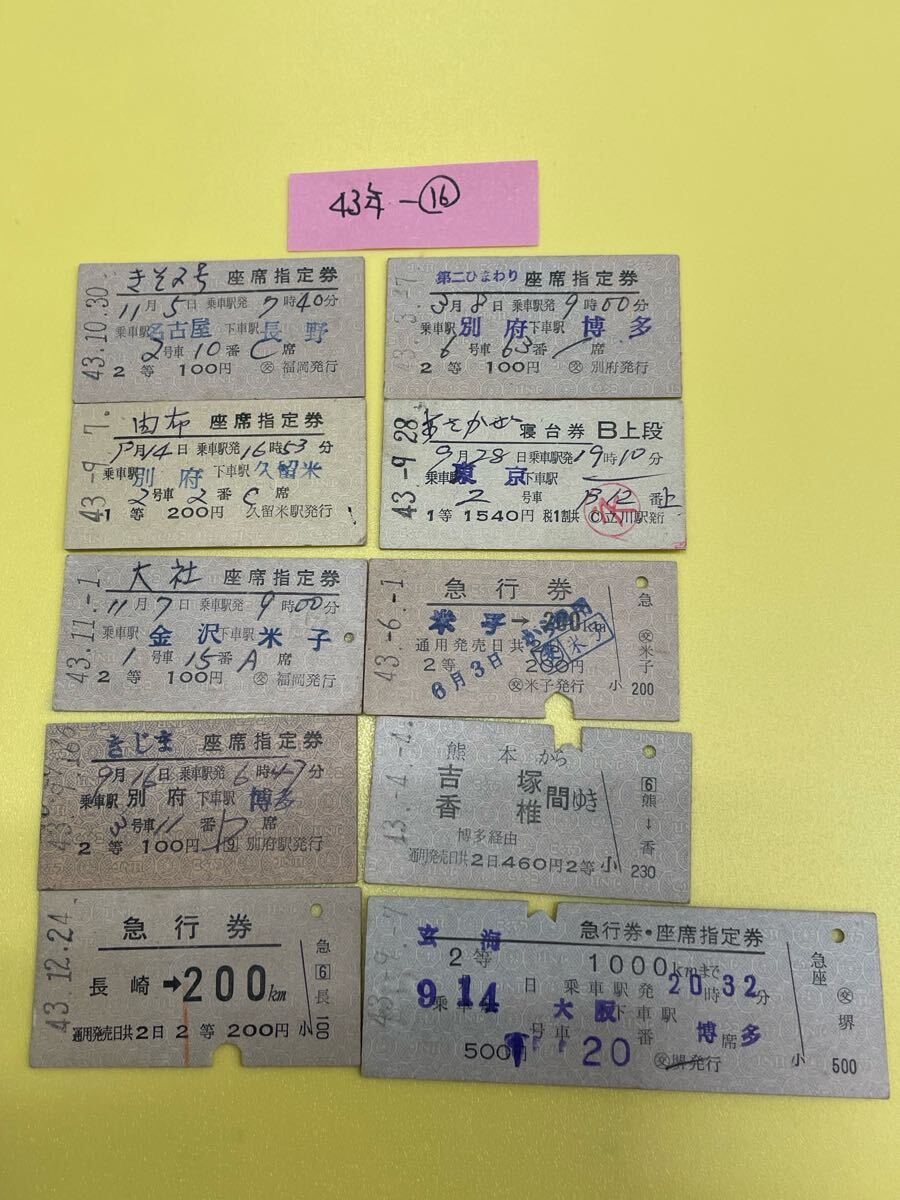 43年-⑯
43.10.30.
きそ2号 座席指定券
11月5日 乗車駅発 7時40分
乗車駅 名古屋 下車駅 長野
2号車10番C席
2等 100円 ㊋福岡発行
第二ひまわり 座席指定券
3月8日 乗車駅発 9時00分
乗車駅 別府 下車駅 博多
6号車63番 席
2等 100円 交 別府発行
43.-9.-7.
由布 座席指定券
9月14日 乗車駅発 16時53分
乗車駅 別府 下車駅 久留米
2号車2番C席
1等 200円 久留米駅発行
43.-9.28
あさかぜ 寝台券 B上段
9月28日乗車駅発19時10分
乗車駅 東京 下車駅
2号車 B12番上
1等 1540円 税1割共 C立川駅発行
43.11.-1.
大社 座席指定券
11月7日 乗車駅発 9時00分
乗車駅 金沢 下車駅 米子
1号車15番A席
2等 100円 交 福岡発行
43.-6.-1
急行券
米子→200km
から有効
通用発売日共2日
2等 200円
6月3日
交 米子
交米子発行
小
急
交米子
200
きじま 座席指定券
9月16日 乗車駅発 6時47分
乗車駅 別府 下車駅 博多
3号車11番D席
2等 100円 9 別府駅発行
43.-4.-4.
熊本から
吉塚
香椎
間ゆき
博多経由
通用発売日共2日460円2等 小
6
熊→香
230
43.12.24
急行券
長崎→200km
通用発売日共2日 2等 200円 小
急
6
長
100
玄海 急行券・座席指定券
2等 1000kmまで
9 14日 乗車駅発 20時32分
乗車駅 大阪 下車駅 博多
号車 20番 席
500円 交堺発行
小
急座
交堺
500